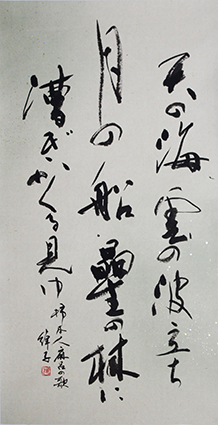 天の海雲の波立ち
月の船星の林に
漕ぎかくる見ゆ
柿本人麻呂の歌